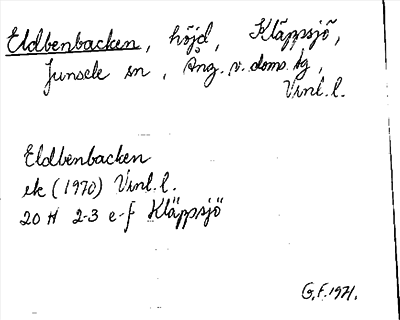 Eldbenbacken, höjd, Kläppsjö,
Junsele sn, Ång. v. doms. tg,
Vinl.l.
Eldbenbacken
ek (1970) Vinl.l.
20 H 2-3 e-f Kläppsjö
G.F. 1971.